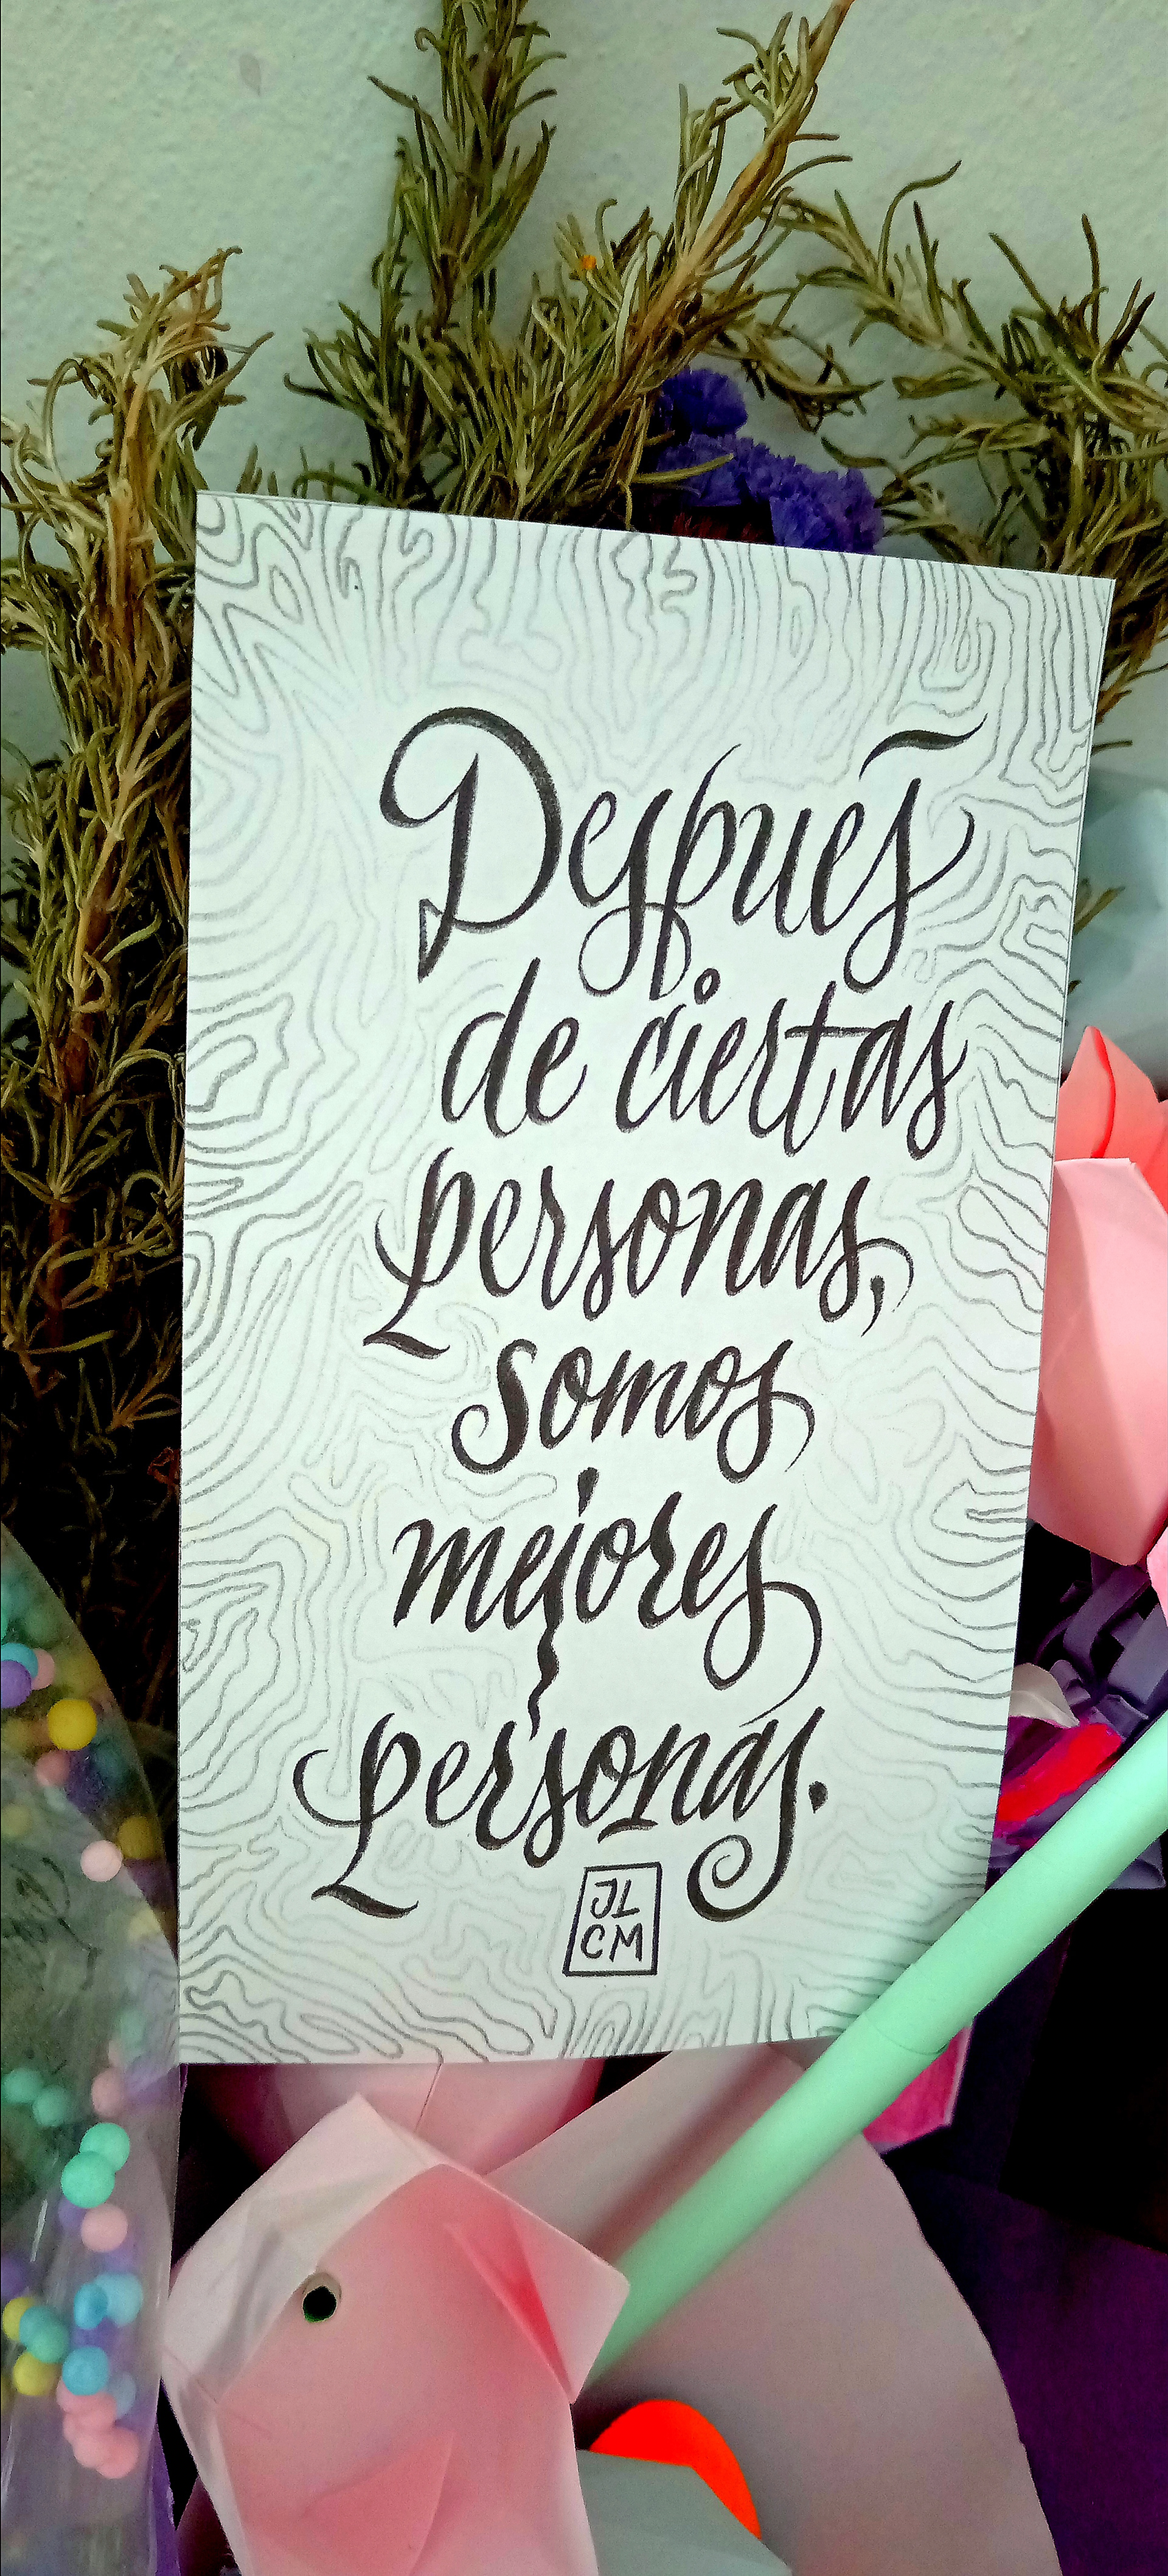 Después
de ciertas
personas,
somos
mejores
personas.
JL
CM